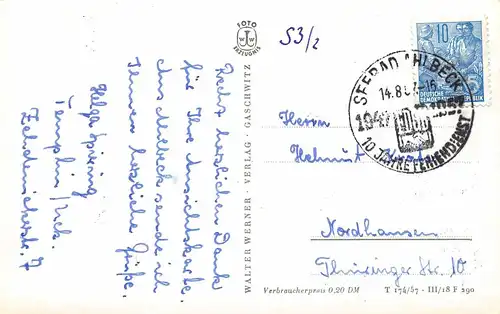 Recht herzlichen Dank
für Ihre Ansichtskarte.
Aus Ahlbeck sende ich
Ihnen herzliche Grüße.
Helga
Templin/Uck.
FOTO
ERZEUGNIS
WALTER WERNER · VERLAG · GASCHWITZ
53/2
10
DEUTSCHE
DEMOKRATISCHE REPUBLIK
SEEBAD AHLBECK
14.8.57
1947
1957
10 JAHRE FERIENDIENST
Herrn
Helmut
Nordhausen
Thüringer Str. 10
Verbraucherpreis 0,20 DM
T 174/57 - III/18 F 290